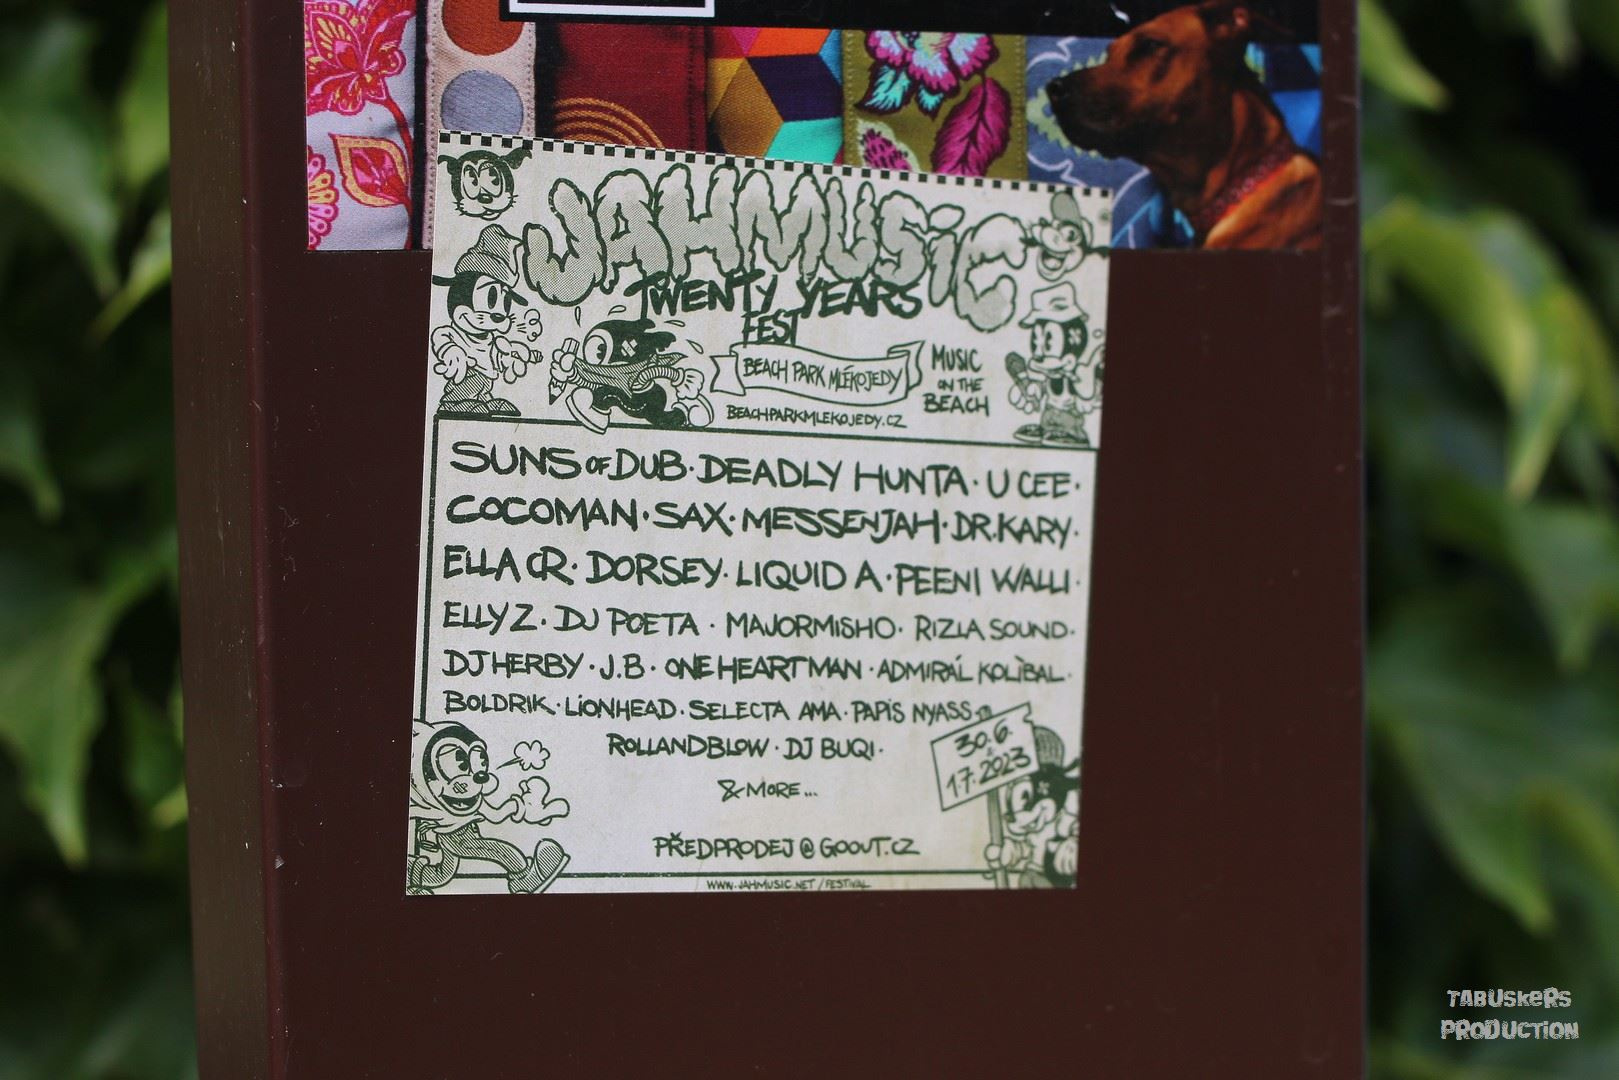 JAHMUSIC
TWENTY YEARS
FEST
BEACH PARK MLÉKOJEDY
BEACHPARKMLEKOJEDY.CZ
MUSIC
ON THE
BEACH
SUNS OF DUB · DEADLY HUNTA · U CEE ·
COCOMAN · SAX · MESSENJAH · DR. KARY ·
ELLA CR · DORSEY · LIQUID A · PEENI WALLI ·
ELLY Z · DJ POETA · MAJORMISHO · RIZLA SOUND ·
DJ HERBY · J.B · ONE HEART MAN · ADMIRÁL KOLÍBAL ·
BOLDRIK · LIONHEAD · SELECTA AMA · PAPIS NYASS ·
ROLLANDBLOW · DJ BUQI ·
& MORE...
30.6.
&
1.7.2023
PŘEDPRODEJ @ GOOUT.CZ
WWW.JAHMUSIC.NET/FESTIVAL
TABUSKERS
PRODUCTION